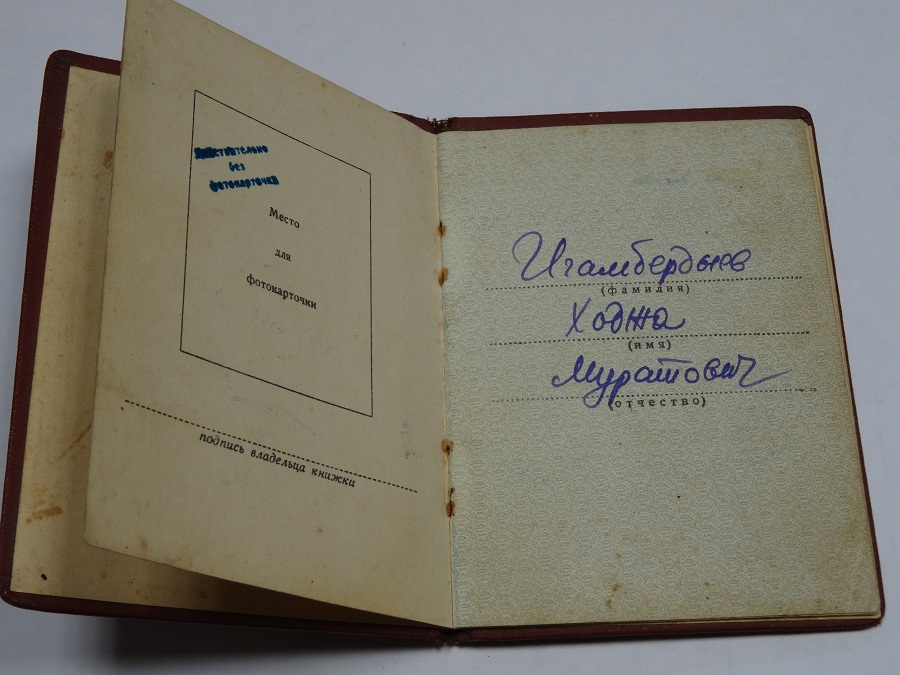 Действительно
без
фотокарточки
Место
для
фотокарточки
подпись владельца книжки
Игамбердыев
(фамилия)
Ходжа
(имя)
Муратович
(отчество)